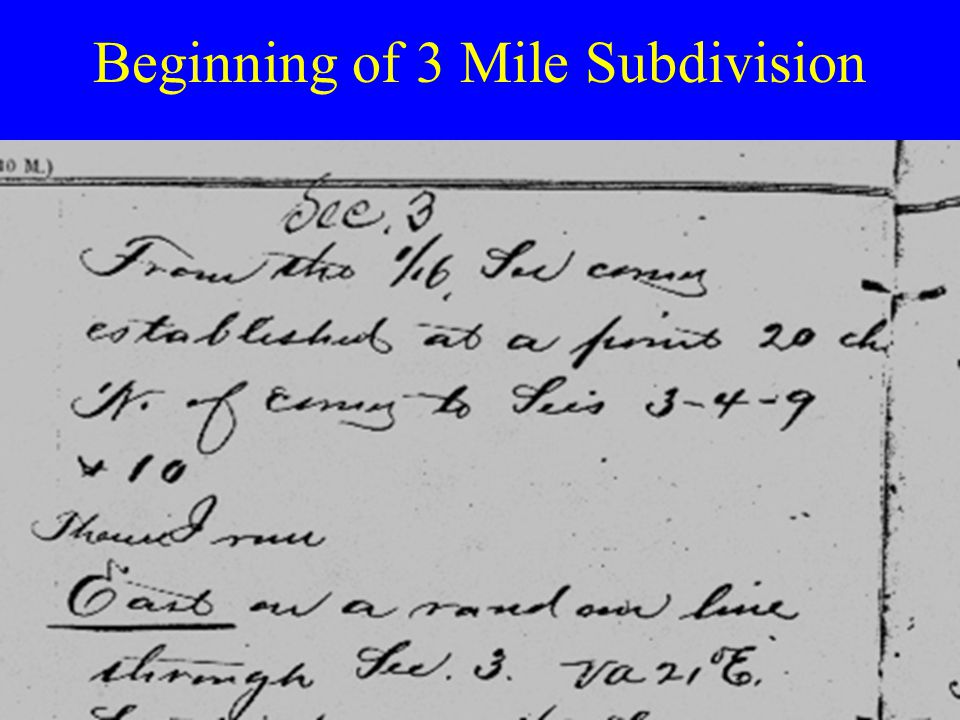 Beginning of 3 Mile Subdivision
30 M.)
Sec. 3
From the 1/16, Sec corner
established at a point 20 ch
N. of corner to Secs 3-4-9
+ 10
Thence I run
East on a random line
through Sec. 3. Va 21°E.